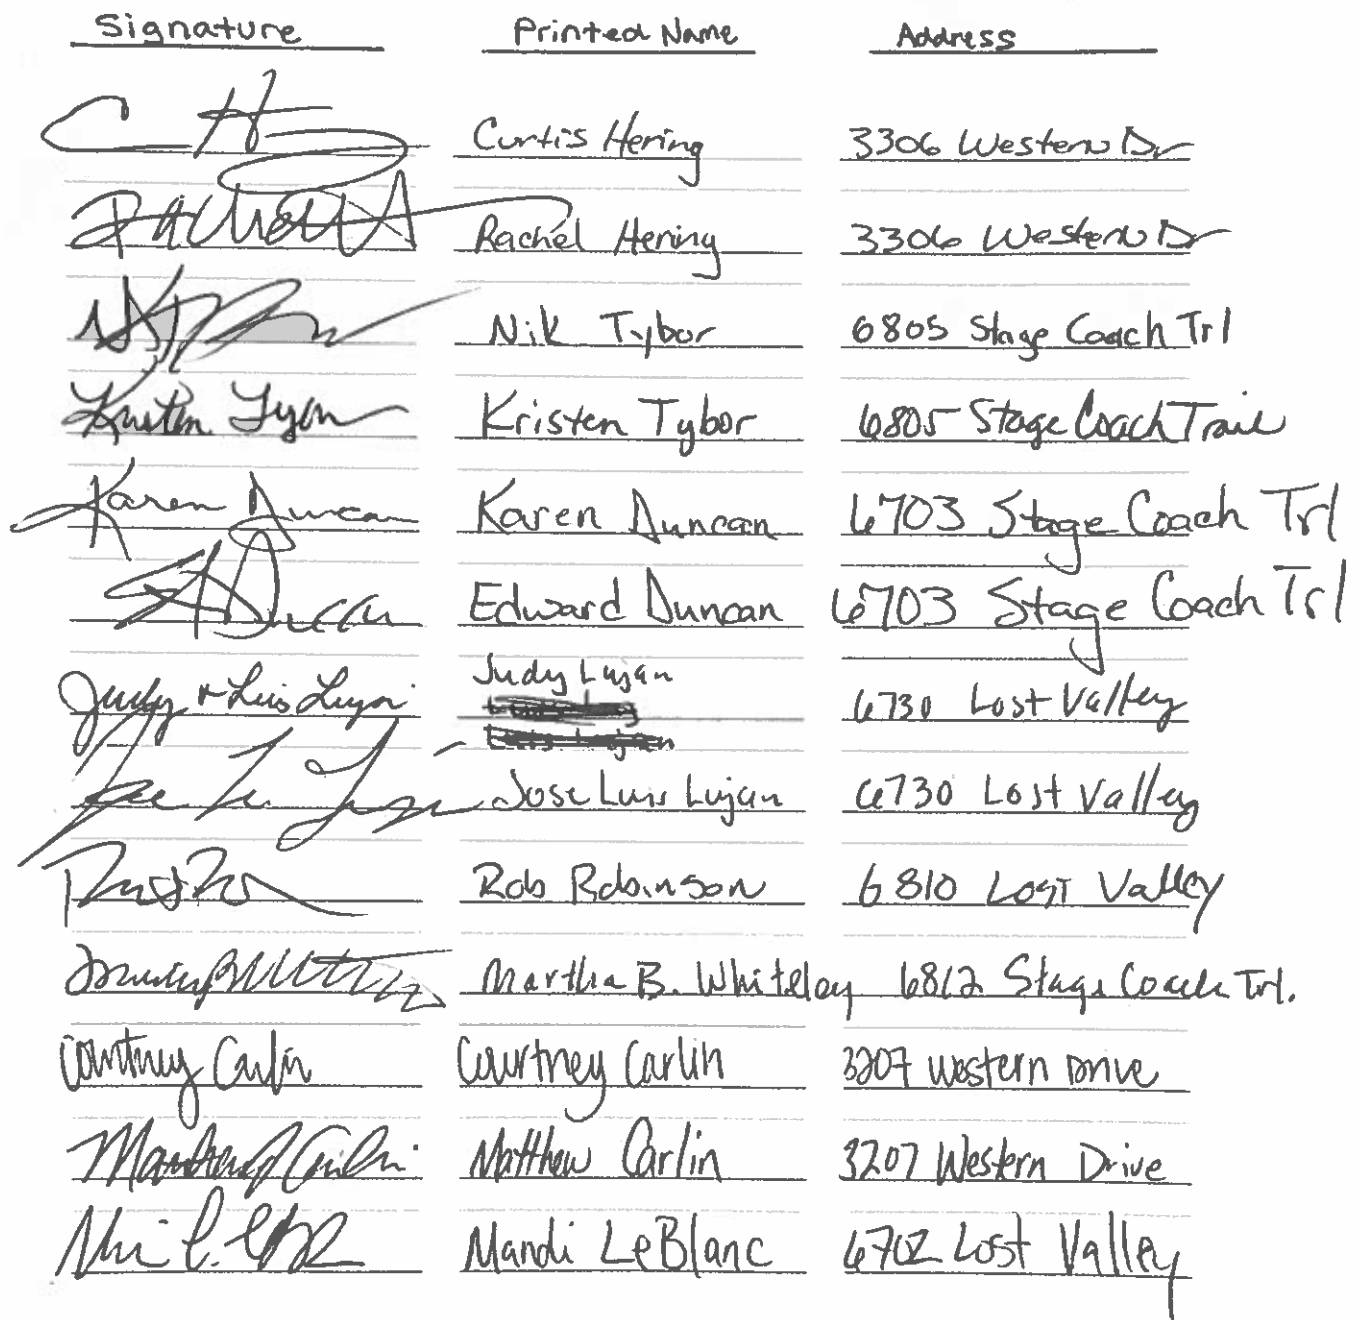 Signature Printed Name Address
Curtis Hering 3306 Western Dr
Rachel Hering 3306 Western Dr
Nik Tybor 6805 Stage Coach Trl
Kristen Tybor 6805 Stage Coach Trail
Karen Duncan Karen Duncan 6703 Stage Coach Trl
Duncan Edward Duncan 6703 Stage Coach Trl
Judy Lujan
Judy & Luis Lujan 6730 Lost Valley
Jose Luis Lujan 6730 Lost Valley
Rob Robinson 6810 Lost Valley
Martha B. Whiteley 6812 Stage Coach Trl.
Courtney Carlin Courtney Carlin 3207 Western Drive
Matthew Carlin 3207 Western Drive
Mandi LeBlanc 6702 Lost Valley